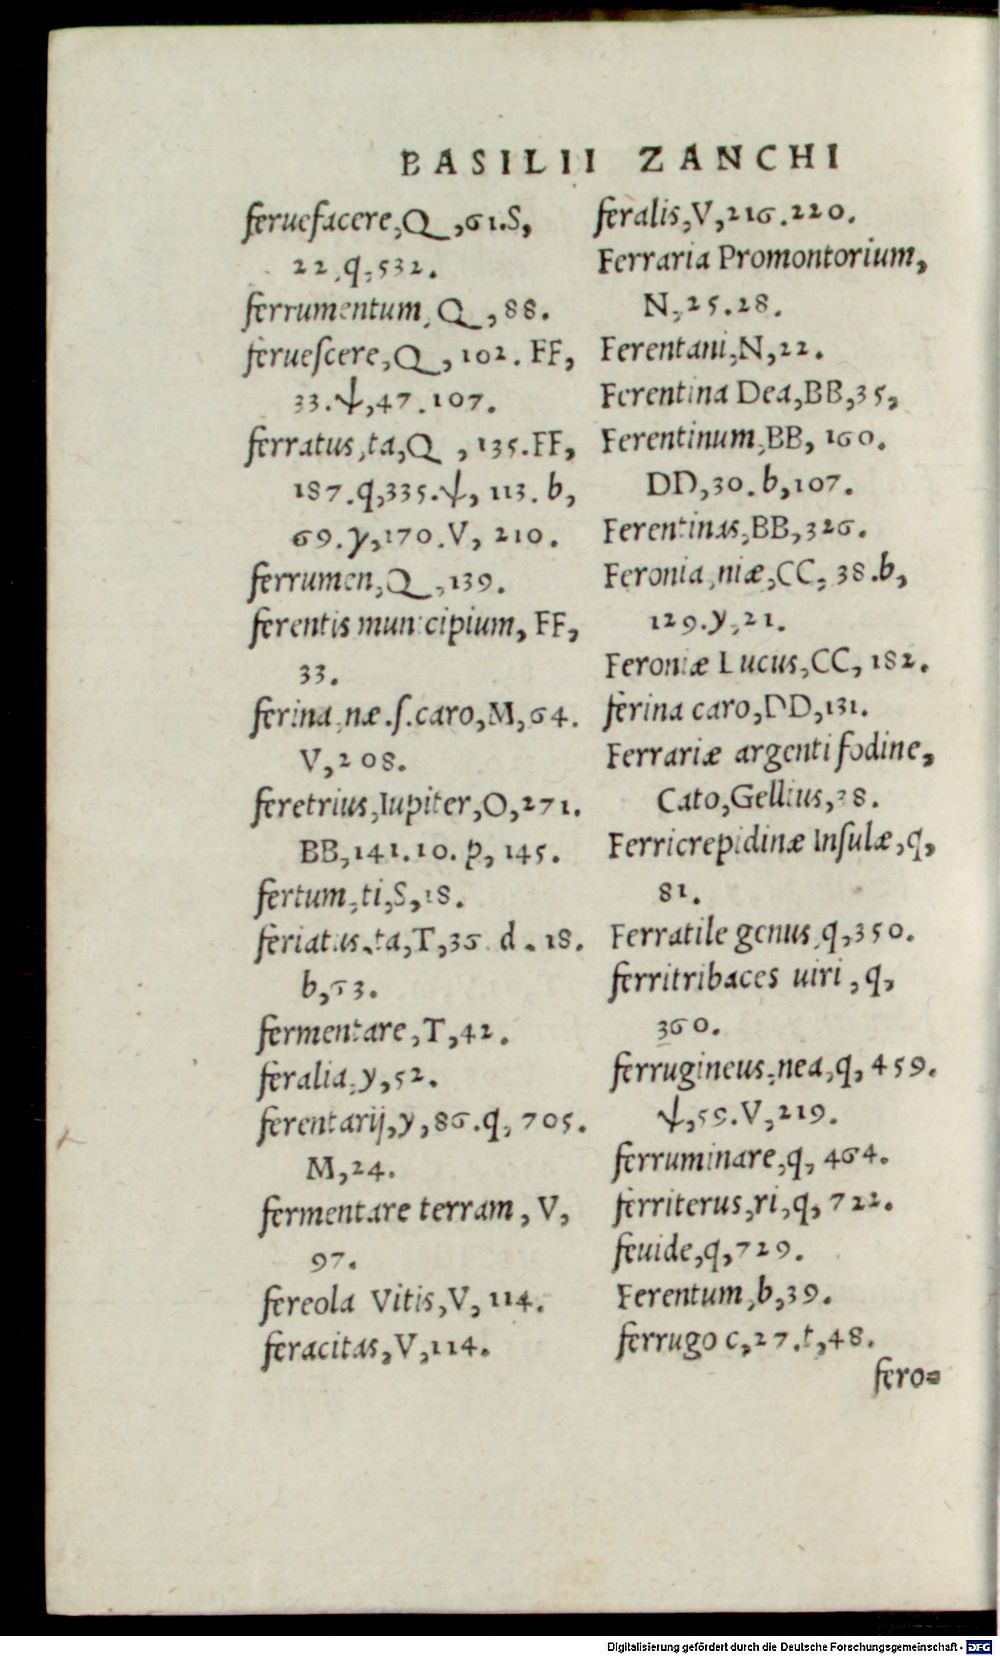 BASILII ZANCHI
feruefacere, Q, 61. S,
22. q, 532.
ferrumentum, Q, 88.
feruescere, Q, 102. FF,
33. ψ, 47. 107.
ferratus, ta, Q, 135. FF,
187. q, 335. ψ, 113. b,
69. y, 170. V, 210.
ferrumen, Q, 139.
ferentis municipium, FF,
33.
ferina, næ. ſ. caro, M, 64.
V, 208.
feretrius, Iupiter, O, 271.
BB, 141. 10. p, 145.
fertum, ti, S, 18.
feriatus, ta, T, 36. d. 18.
b, 53.
fermentare, T, 42.
feralia, y, 52.
ferentarij, y, 86. q, 705.
M, 24.
fermentare terram, V,
97.
fereola Vitis, V, 114.
feracitas, V, 114.
feralis, V, 216. 220.
Ferraria Promontorium,
N, 25. 28.
Ferentani, N, 22.
Ferentina Dea, BB, 35,
Ferentinum, BB, 160.
DD, 30. b, 107.
Ferentinas, BB, 326.
Feronia, niæ, CC, 38. b,
129. y, 21.
Feroniæ Lucus, CC, 182.
ferina caro, DD, 131.
Ferrariæ argenti fodine,
Cato, Gellius, 38.
Ferricrepidinæ Inſulæ, q,
81.
Ferratile genus, q, 350.
ferritribaces uiri, q,
360.
ferrugineus, nea, q, 459.
ψ, 59. V, 219.
ferruminare, q, 464.
ferriterus, ri, q, 722.
feuide, q, 729.
Ferentum, b, 39.
ferrugo c, 27. t, 48.
fero=
Digitalisierung gefördert durch die Deutsche Forschungsgemeinschaft - DFG